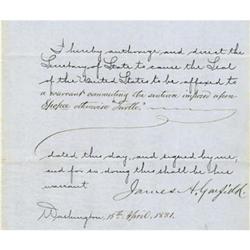 I hereby authorize and direct the
Secretary of State to cause the Seal
of the United States to be affixed to
a warrant commuting the sentence imposed upon
"Spopee otherwise Turtle."
dated this day, and signed by me,
and for so doing this shall be his
warrant
James A. Garfield.
Washington, 15th April, 1881.